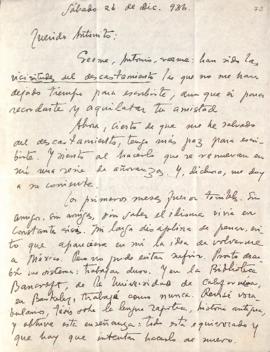 Sábado 26 de dic. 986.
Querido Antonito:
Créame, Antonio, créame: han sido las
vicisitudes del descastamiento las que no me han
dejado tiempo para escribirte, aunque sí para
recordarte y aquilatar tu amistad.
Ahora, cierto de que me he salvado
del descastamiento, tengo más paz para escri-
birte. Y siento al hacerlo que se renuevan en
mí una serie de añoranzas. Y, dichoso, me doy
a su corriente.
Los primeros meses fueron terribles. Sin
amigos, sin amigas, sin saber el idioma vivía en
constante crisis. Mi larga disciplina de pensar
que aparecía en mí la idea de volverme
a México. Pero no pude sufrir. Pronto
mi sistema: trabajar duro. Y en la Biblioteca
Bancroft, de la Universidad de California,
en Berkeley, trabajé como nunca. Revisé voca-
bularios, leí sobre la lengua zapoteca, historia antigua,
y obtuve esta enseñanza: todo está equivocado y
que hay que intentar hacerlo de nuevo.